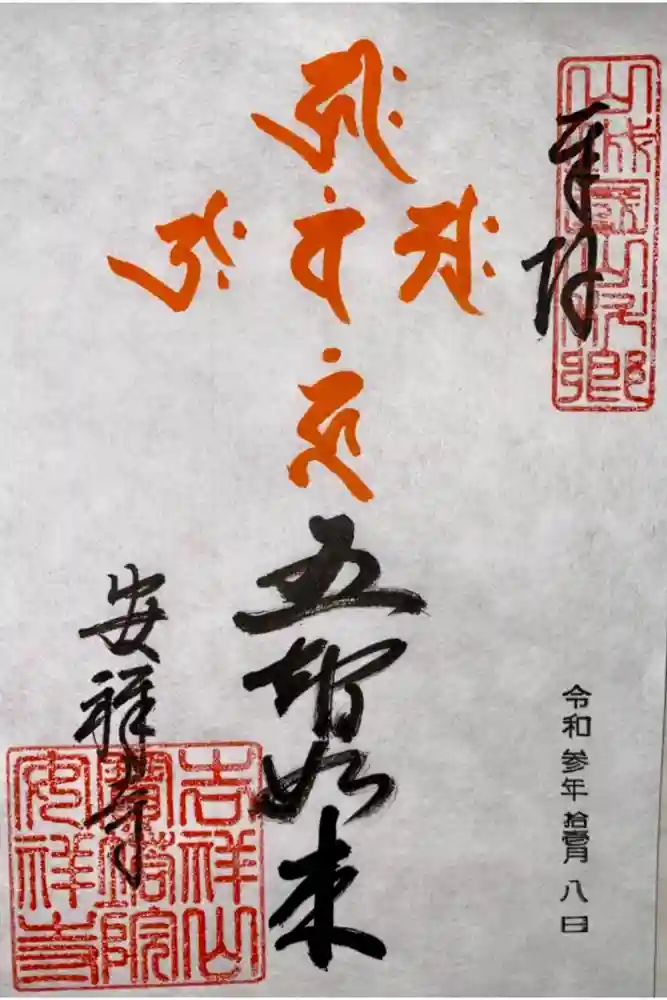 奉拝
山城國山科郷
五智如来
安祥寺
吉祥山
寶塔院
安祥寺
令和参年拾壹月八日